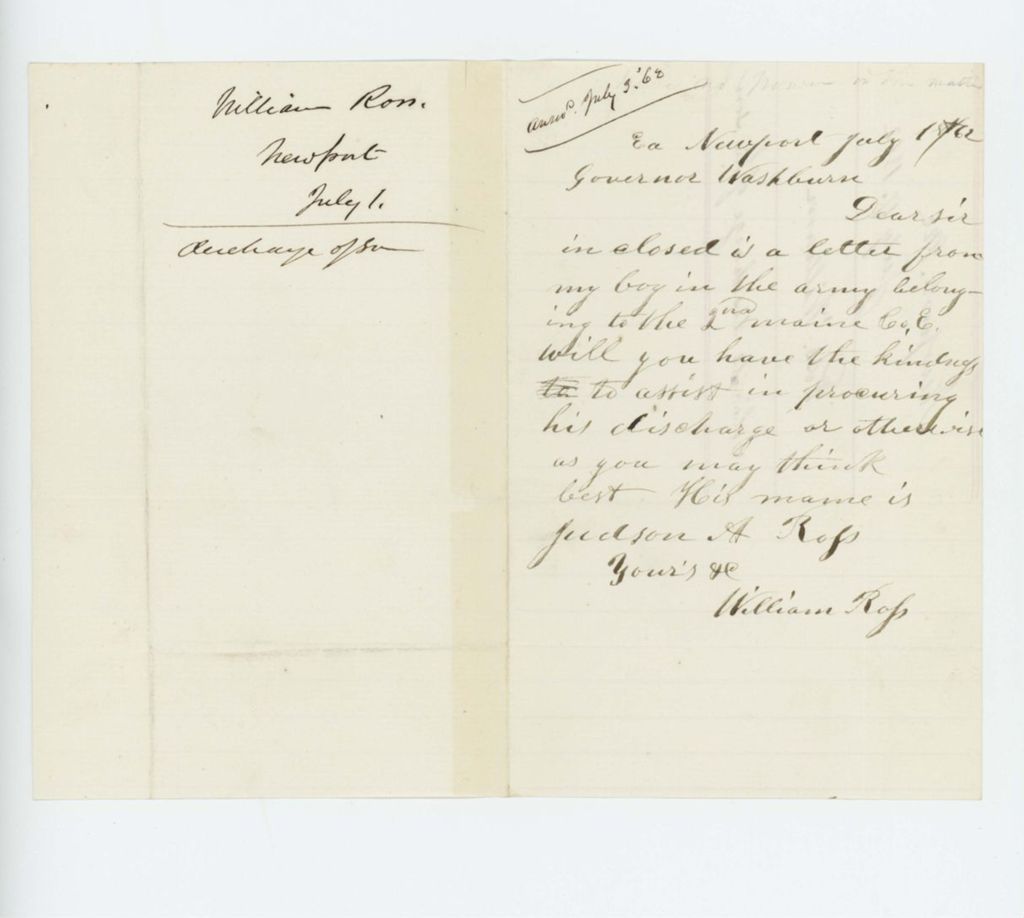 William Ross.
Newport
July 1.
discharge of son
Answd. July 3. '62
Ea Newport July 1st/62
Governor Washburn
Dear sir
in closed is a letter from
my boy in the army belong-
ing to the 2nd maine Co, E.
will you have the kindness
to to assist in procuring
his discharge or otherwise
as you may think
best His mame is
Judson A Ross
Your's &c
William Ross